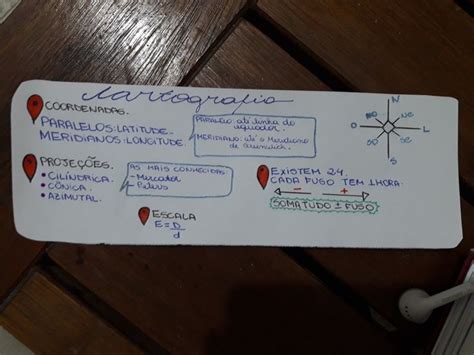 Cartografia
COORDENADAS.
PARALELOS: LATITUDE.
MERIDIANOS: LONGITUDE.
PARALELO: até linha do
equador.
MERIDIANO: até o Meridiano
de Greenwich
N
NO
NE
O
L
SO
SE
S
PROJEÇÕES.
• CILÍNDRICA.
• CÔNICA.
• AZIMUTAL.
AS MAIS CONHECIDAS:
- Mercator
- Peters
ESCALA
E = D
d
EXISTEM 24.
CADA FUSO TEM 1 HORA.
- +
SOMATUDO ± FUSO